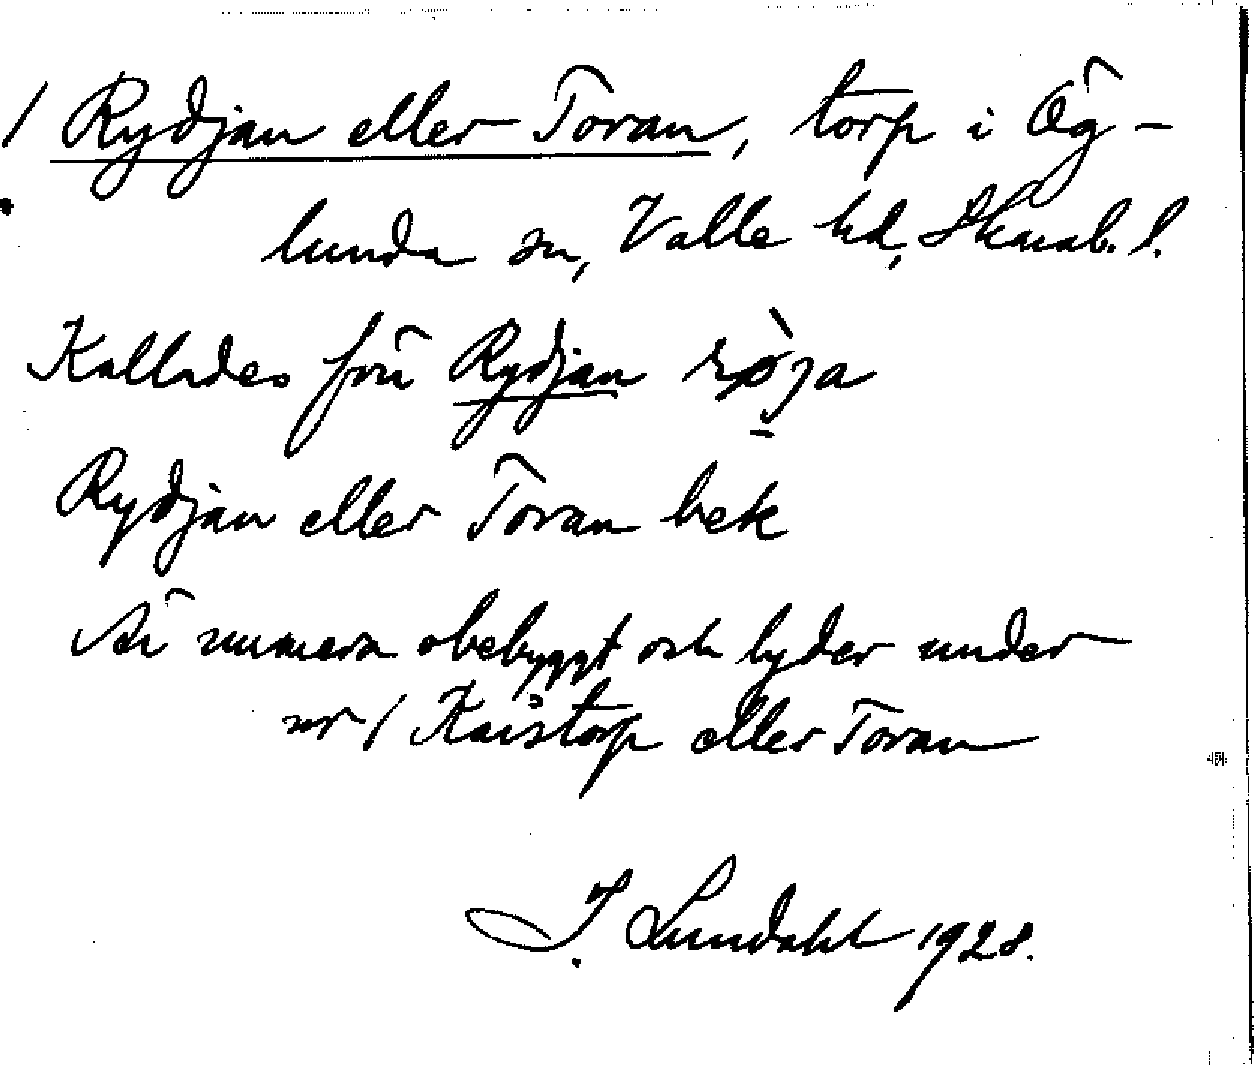 / Rydjan eller Toran, torp i Ög-
lunda sn, Valle hd, Skarab. l.
Kallades förr Rydjan
Rydjan eller Toran bek
Är numera obebyggt och lyder under
nr 1 Kaistorp eller Toran
I. Lundahl 1928.